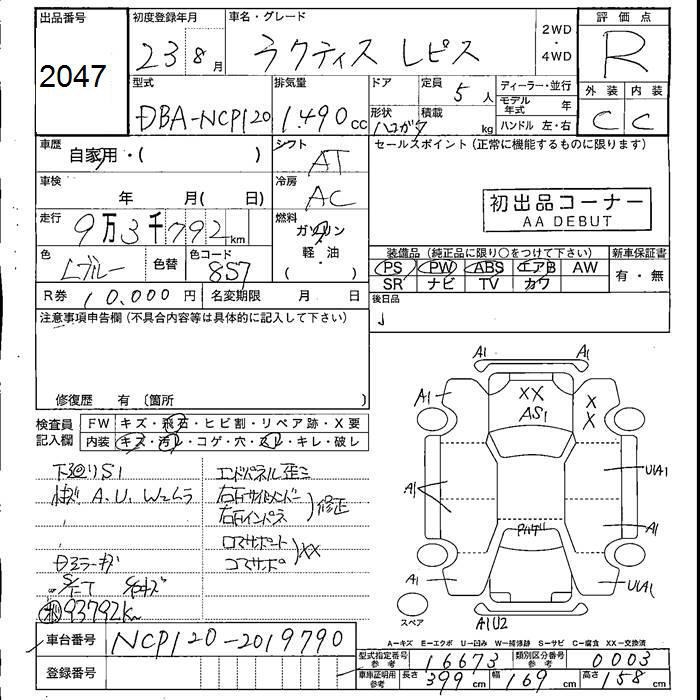 出品番号
2047
初度登録年月
23 8月
車名・グレード
ラクティス レピス
2WD
・
4WD
評価点
R
型式
DBA-NCP120
排気量
1.490cc
ドア
形状
定員
5人
積載
kg
ディーラー・並行
モデル年式 年
ハンドル 左・右
外装
C
内装
C
車歴
自家用・( )
シフト
AT
セールスポイント(正常に機能するものに限ります)
車検
年 月( 日)
冷房
AC
初出品コーナー
AA DEBUT
走行
9万3千792km
燃料
ガソリン
軽・油
( ・ )
色
Lブルー
色替
色コード
8S7
装備品(純正品に限り○をつけて下さい)
新車保証書
PS PW ABS エアB AW
SR ナビ TV カワ
有・無
R券 10,000円
名変期限 月 日
後日品
注意事項申告欄(不具合内容等は具体的に記入して下さい)
修復歴 有〔箇所 〕
検査員記入欄
FW キズ・飛石・ヒビ割・リペア跡・X要
内装 キズ・汚レ・コゲ・穴・スレ・キレ・破レ
下廻りS1
A.U.Wムラ
93792km
エンドパネル歪ミ
右右サイドメンバー
右右インパネ
修正
コアサポート
コアサポ
XX
A1 A1
A1
XX
AS1
X
X
A1
U1A1
A1
A1
U1A1
A1U2
スペア
A-キズ E-エクボ U-凹み W-補修跡 S-サビ C-腐食 XX-交換済
車台番号
NCP120-2019790
登録番号
型式指定番号 参考
16673
類別区分番号 参考
0003
車庫証明用 参考
長さ 399cm
幅 169cm
高さ 158cm